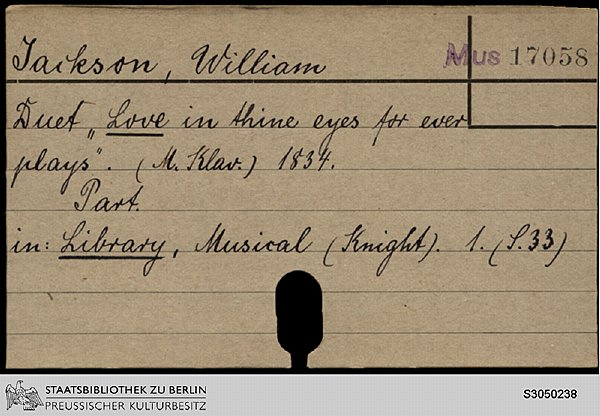 Jackson, William
Mus 17058
Duet „Love in thine eyes for ever
plays". (M. Klav.) 1834.
Part.
in: Library, Musical (Knight). 1. (S. 33)
STAATSBIBLIOTHEK ZU BERLIN
PREUSSISCHER KULTURBESITZ
S3050238